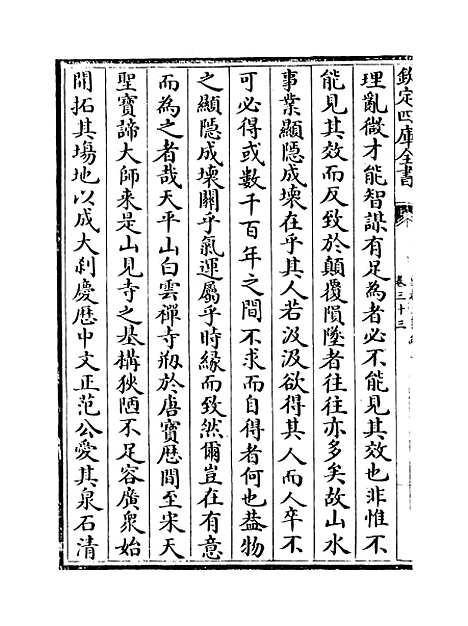 欽定四庫全書
卷三十三
理亂微才能智謀有足為者必不能見其效也非惟不
能見其效而反致於顛覆隕墜者往往亦多矣故山水
事業顯隱成壞在乎其人若汲汲欲得其人而人卒不
可必得或數千百年之間不求而自得者何也葢物
之顯隱成壞關乎氣運屬乎時緣而致然爾豈在有意
而為之者哉天平山白雲禪寺剏於唐寳厯間至宋天
聖寳諦大師来是山見寺之基構狹陋不足容廣衆始
開拓其塲地以成大刹慶厯中文正范公愛其泉石清